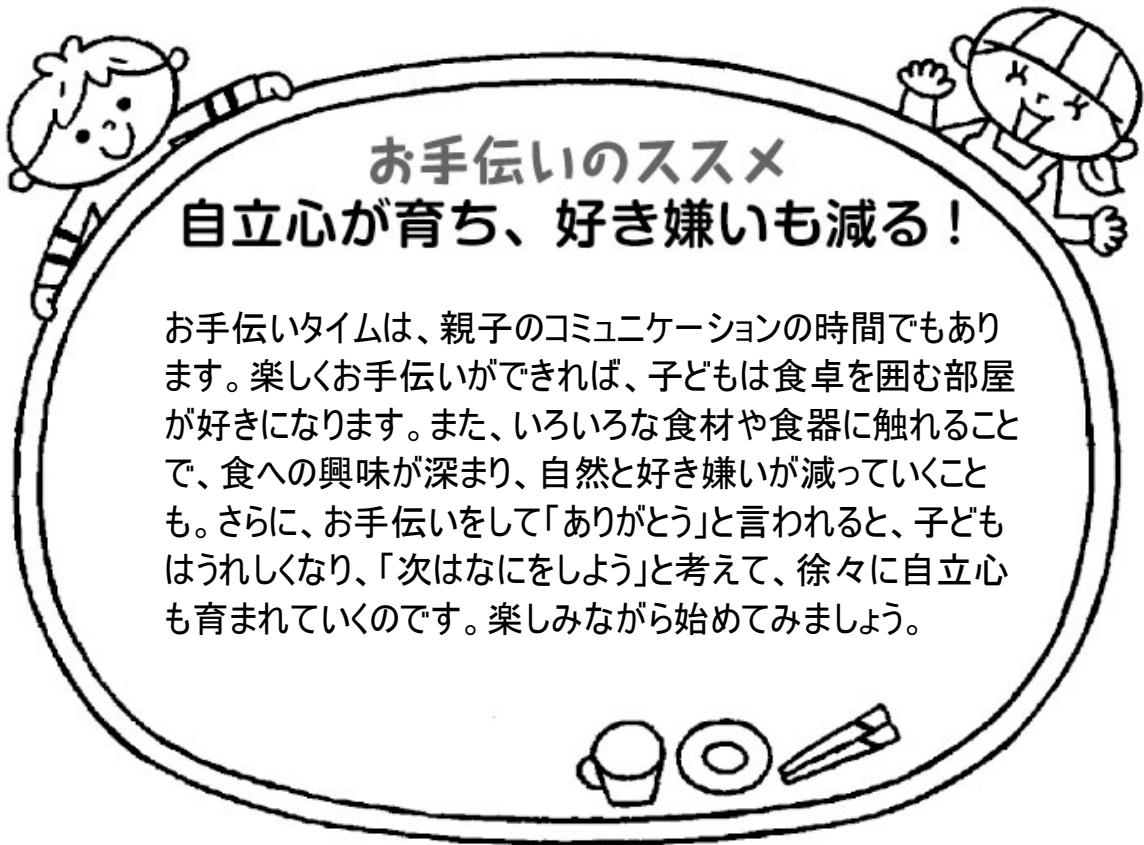 お手伝いのススメ
自立心が育ち、好き嫌いも減る！
お手伝いタイムは、親子のコミュニケーションの時間でもあり
ます。楽しくお手伝いができれば、子どもは食卓を囲む部屋
が好きになります。また、いろいろな食材や食器に触れること
で、食への興味が深まり、自然と好き嫌いが減っていくこと
も。さらに、お手伝いをして「ありがとう」と言われると、子ども
はうれしくなり、「次はなにをしよう」と考えて、徐々に自立心
も育まれていくのです。楽しみながら始めてみましょう。